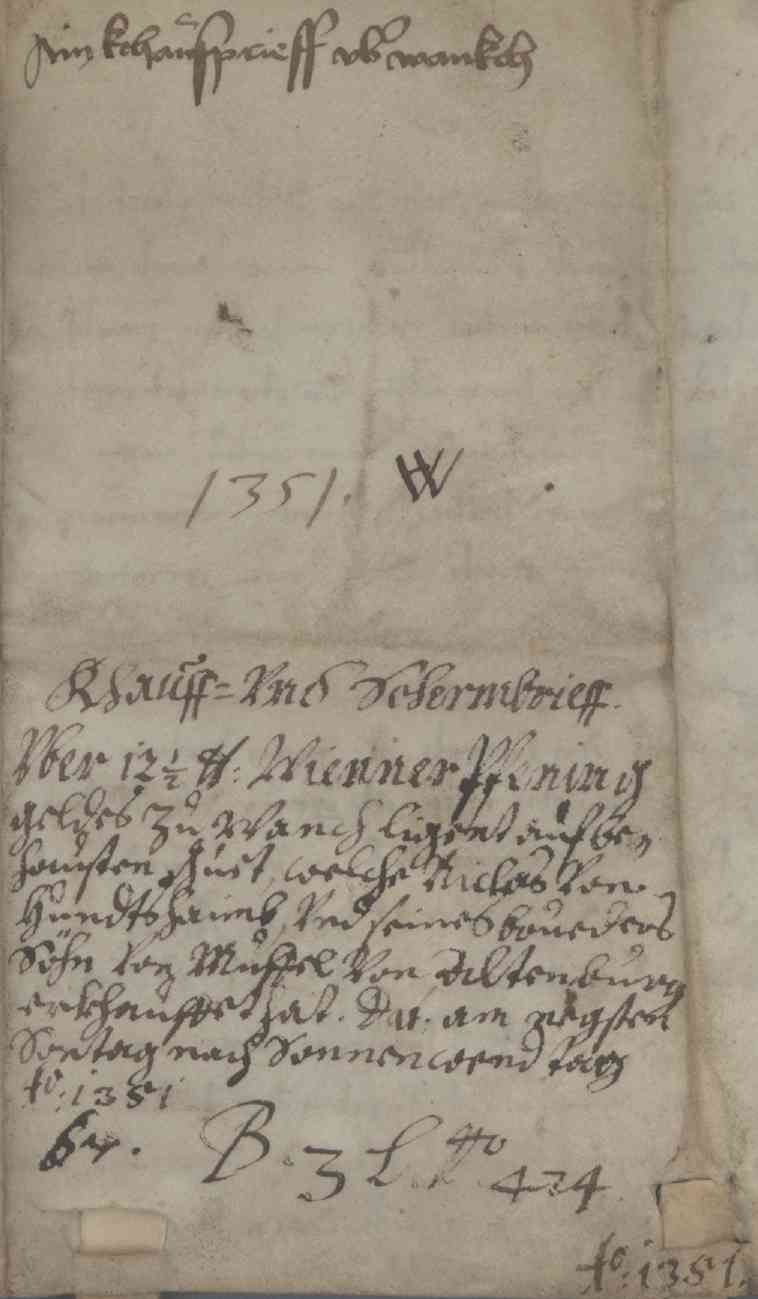 Ain kchaufprieff vb wankch
1351. W
Khauff= Vnd Schermbrieff.
Vber 12½ ℔: Wienner Pfening
geldes zu Wanch ligent auf be„
hausten guet, welche Niclas Von
Hundtshaimb, Vnd seines brueders
Söhn Von Muffel Von Altenburg
erkhauffet hat. Dat. am negsten
Sontag nach Sonnenwend tag
Ao: 1351
B. 3 L. No 424
Ao: 1351.